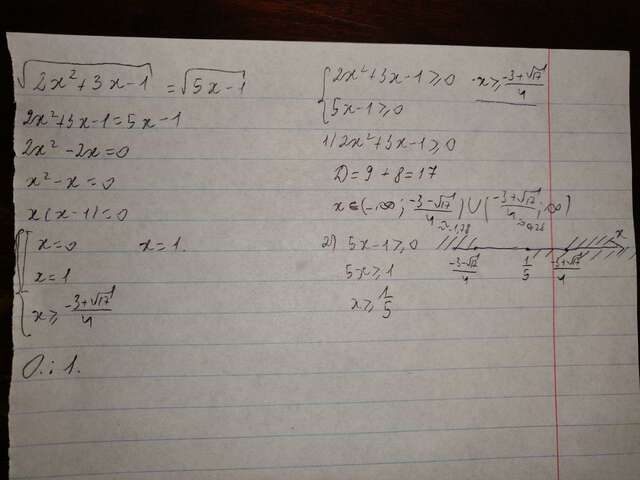 √(2x²+3x-1) = √(5x-1)
2x²+3x-1=5x-1
2x²-2x=0
x²-x=0
x(x-1)=0
x=0 x=1.
x=1
x⩾(-3+√17)/4
О.: 1.
{2x²+3x-1⩾0 x⩾(-3+√17)/4
5x-1⩾0
1) 2x²+3x-1⩾0
D=9+8=17
x∈(-∞; (-3-√17)/4) ∪ ((-3+√17)/4; ∞)
≈-1,78 ≈0,28
2) 5x-1⩾0
5x⩾1
x⩾1/5
(-3-√17)/4 1/5 (-3+√17)/4 x